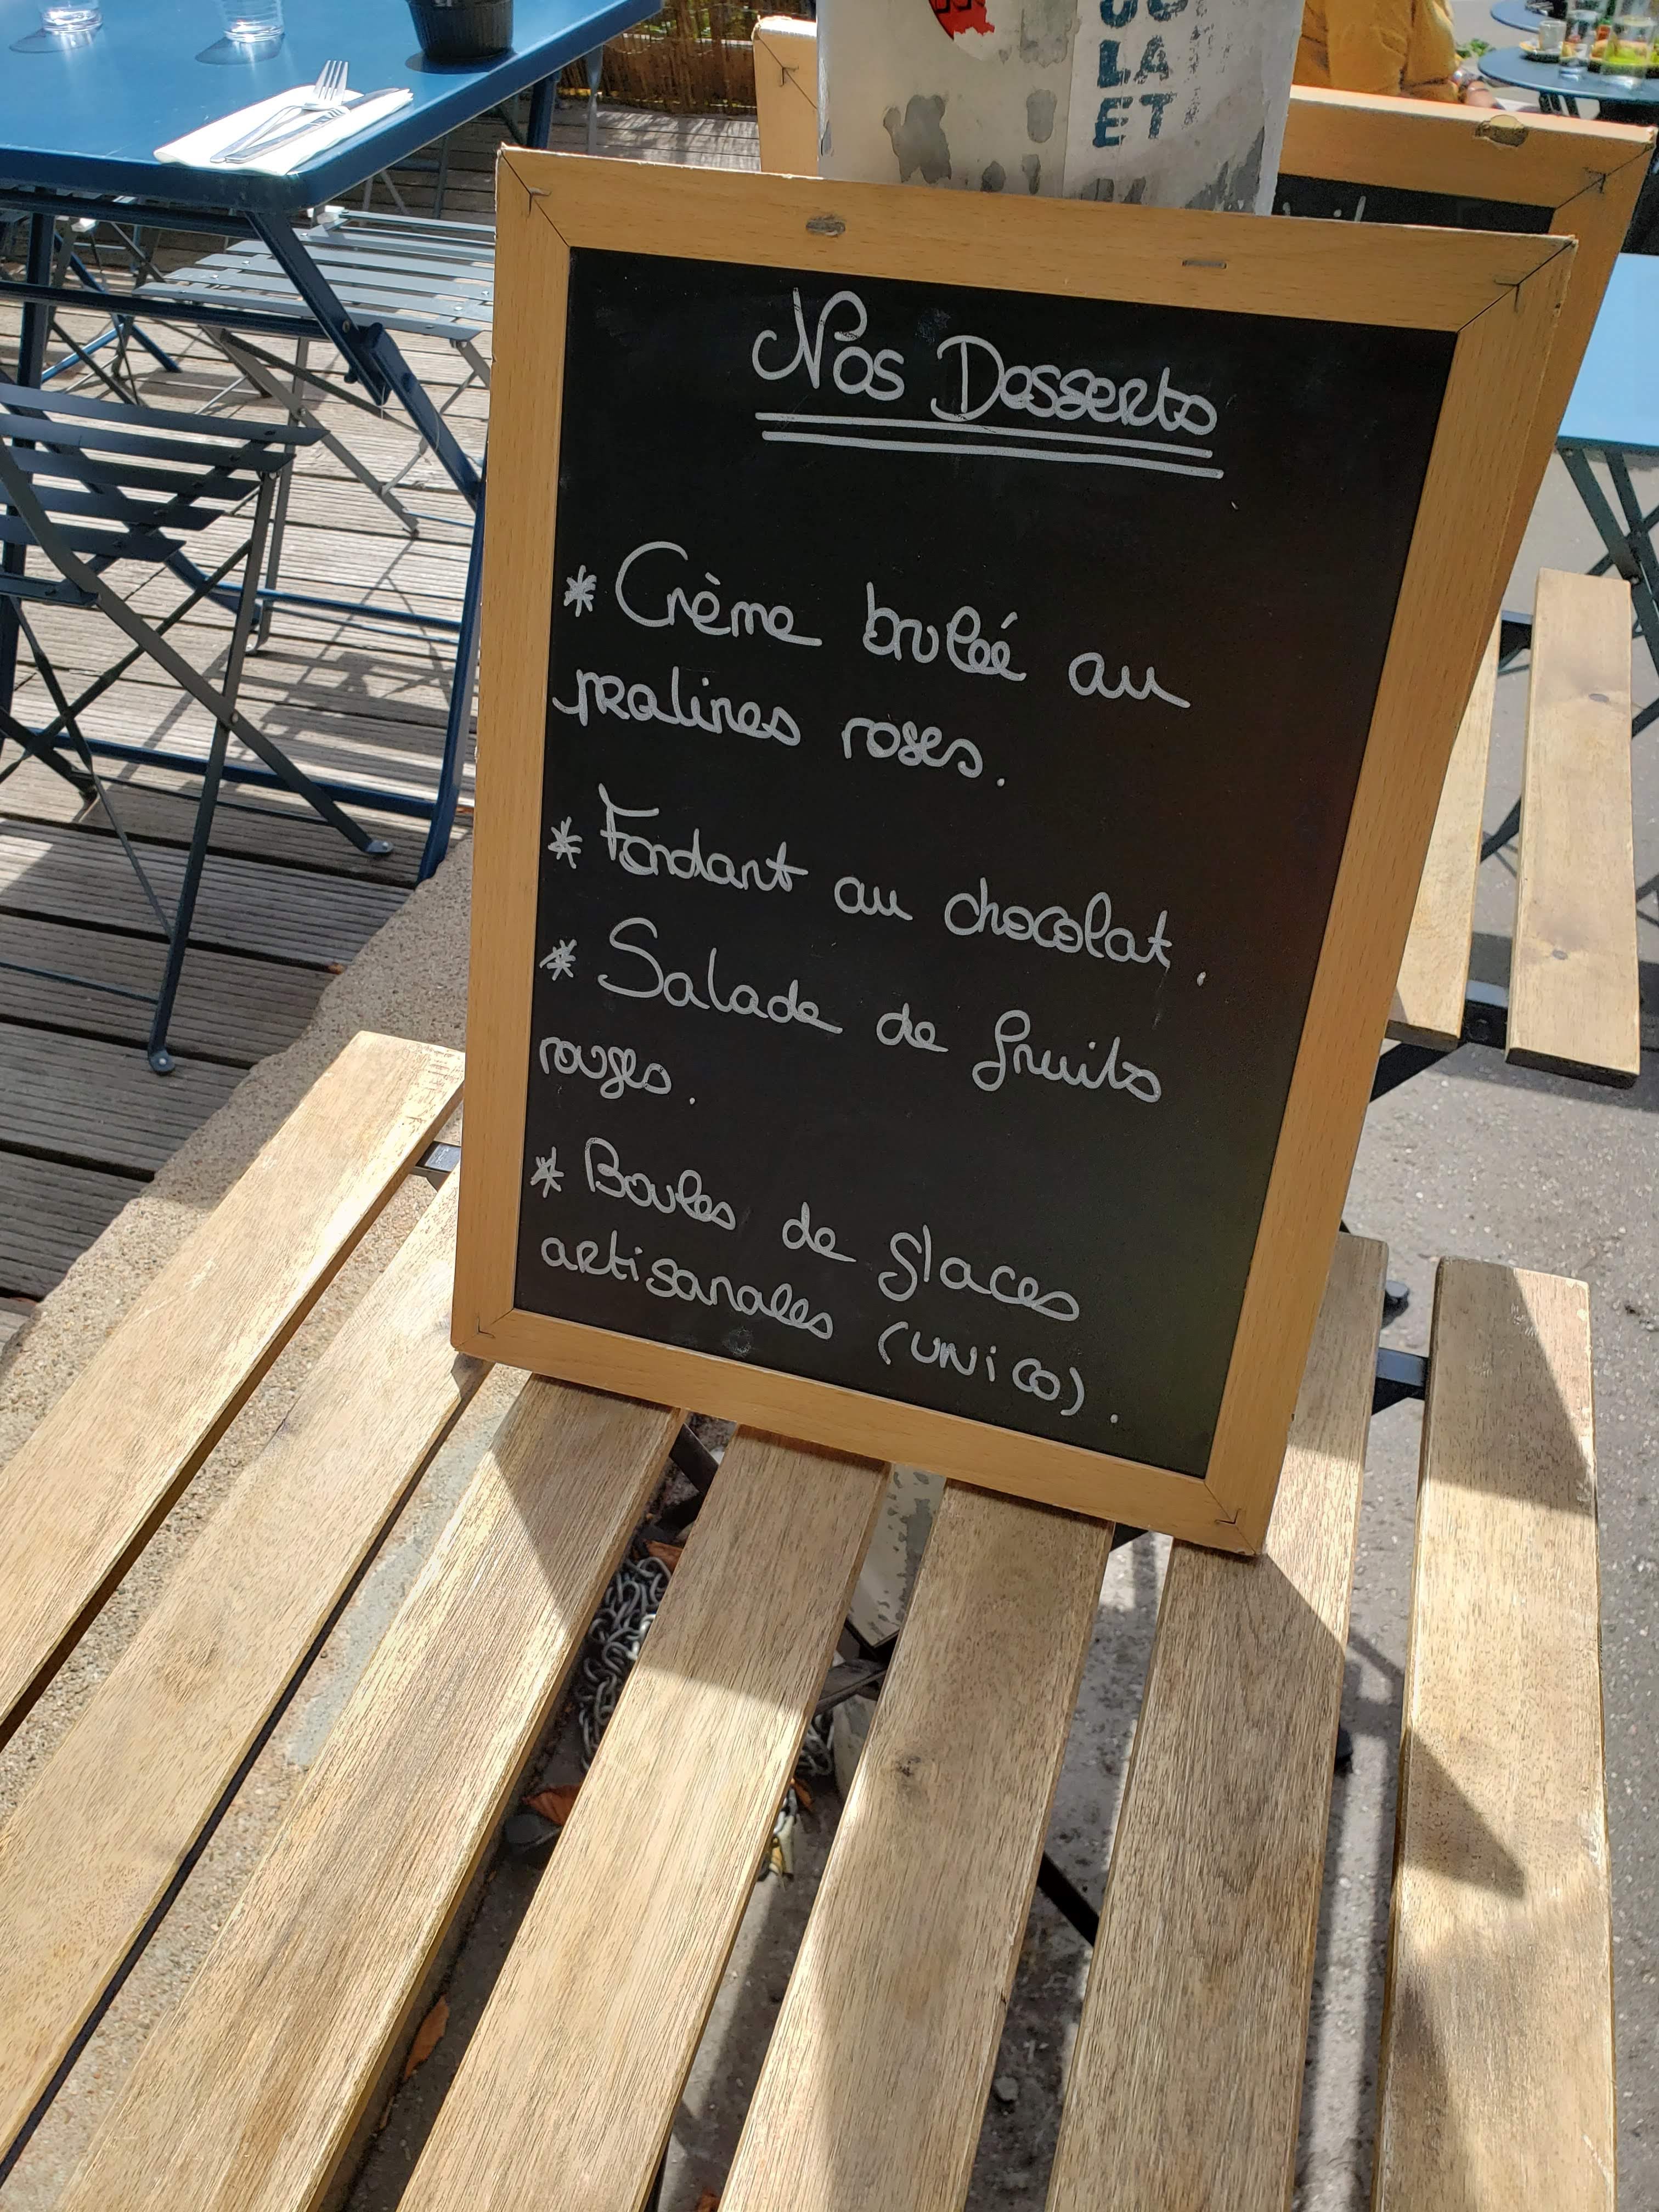 LA
ET
Nos Desserts
* Crème brulée au
pralines roses.
* Fondant au chocolat.
* Salade de fruits
rouges.
* Boules de glaces
artisanales (UNiCO).